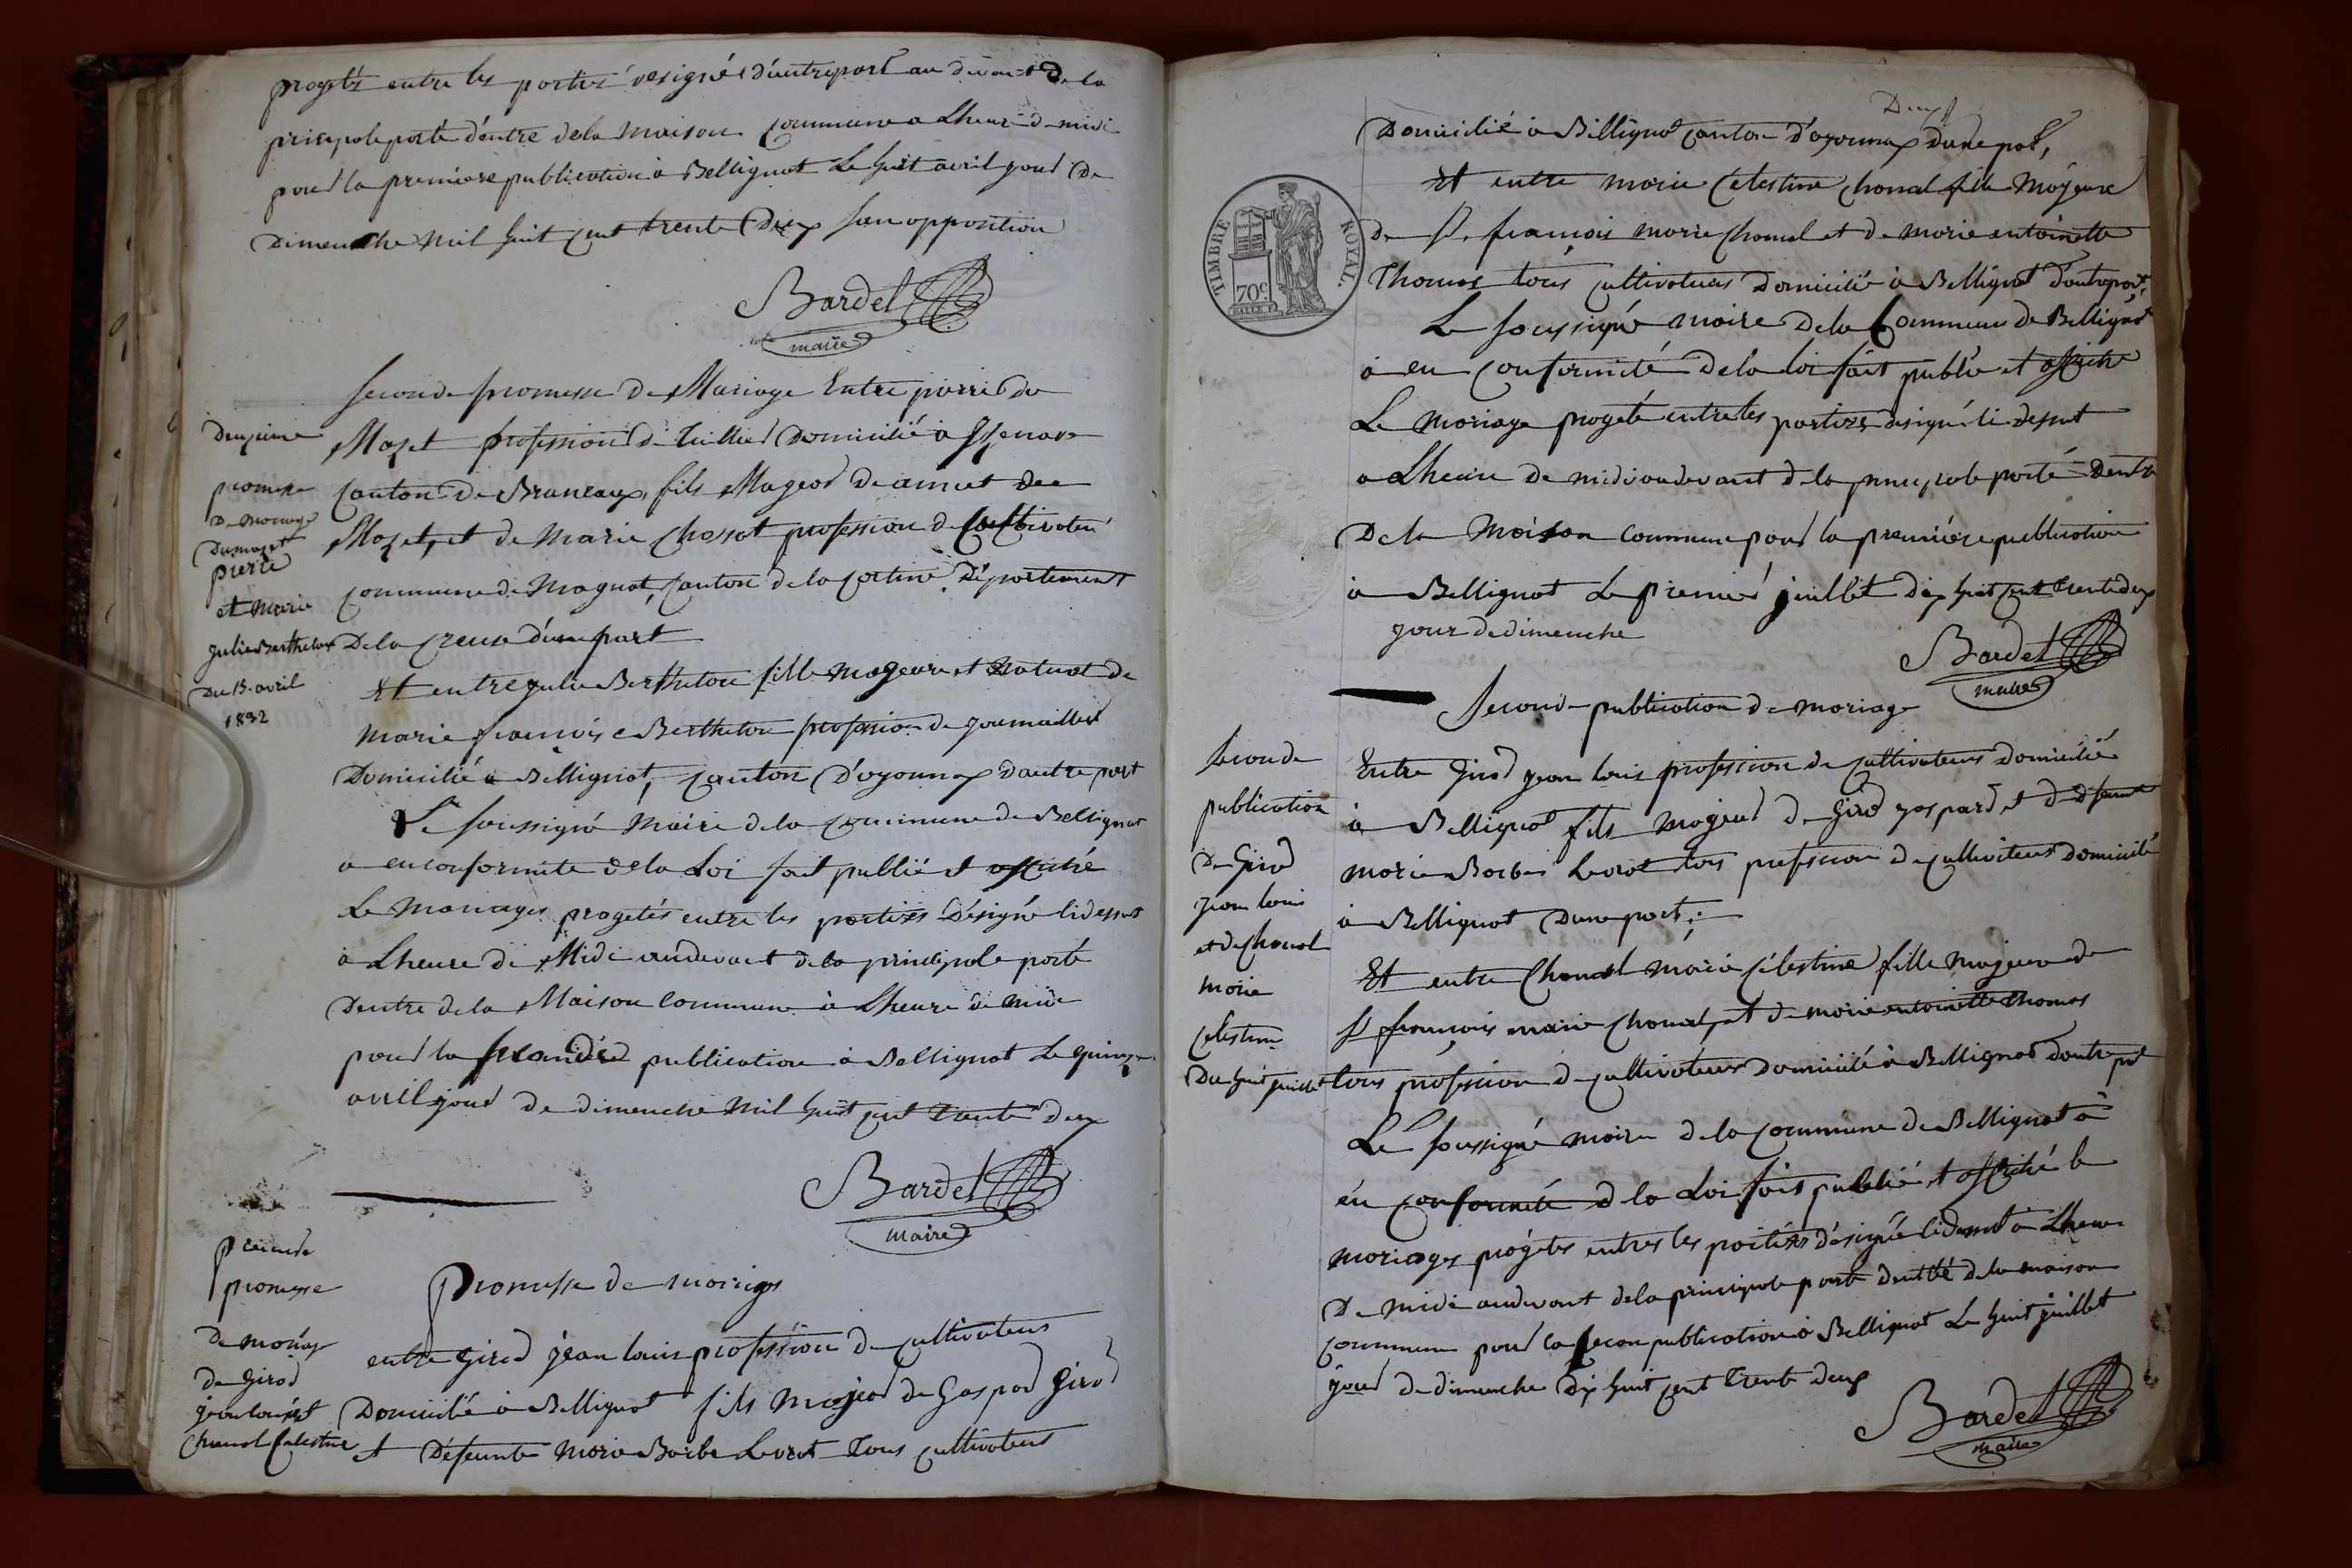 progetés entre les parties désigné d'autre part au devant de la
principale porte d'entre dela maison commune a Lheure de midi
pour la première publication à Bellignat Le huit avril jour De
Dimenche mil huit cent trente Deux san opposition
Bardet
maire
Deuxieme
promesse
De mariage
Dumazet
pierre
et marie
julie Bertheton
Du 15 avril
1832
seconde promesse De Mariage Entre pierre du
Mazet profession de Domicilié à
Canton De fils Mageor De amiet du
Mazet, et de Marie Chassat profession de Cultivateu
commune de Magnat, Canton de la Cortine Département
De la Creuse d'une part
Et entre julie Bertheton fille mageure et Naturel de
Marie françoise Bertheton profession de journaillier
Domicilié a Bellignat, Canton D'oyonnax d'autre part
Le soussigné Maire de la Commune de Bellignat
a en conformite de la Loi fait publié et affiché
Le Mariages progetés entre les parties Désigné cidessut
à Lheure de Midi audevant de la principale porté
Dentre de la Maison Commune à Lheure de midi
pour la secondes publication à Bellignat Le quinze
avril jour de dimenche mil huit cent trente deux
Bardet
maire
premiere
promesse
De mariag
de Girod
jean louis et
Chanal Celestine
Promesse de mariage
entre Girod jean louis profession de cultivateur
Domicilié à Bellignat fils majeor de Gaspar Girod
et Défeunte Marie Barbe Levrat Tous cultivateurs
Deux
Domicilié à Bellignat canton d'oyonnax Dune part,
TIMBRE ROYAL.
70c.
Et entre marie Celestine Chanal fille majeure
de françois marie Chanal et de marie antoinette
Thomas tous cultivateurs Domicilié à Bellignat d'autrepart,
Le soussigné maire de la Commune de Bellignat
à en conformité de la loi fait publié et affiché
Le mariage progeté entre les parties désigné ci dessut
a Lheure de midi audevant de la principale porté Dentre
De la Maison commune pour la première publication
à Bellignat Le premier juillet dix huit cent trente deux
jour de dimenche
Bardet
maire
seconde publication de mariage
seconde
publication
De Girod
jean louis
et de Chanal
marie
Celestine
Du huit juillet
Entre Girod jean louis profession de cultivateurs domicilié
à Bellignat fils mageur de Girod gaspard et de défeunt
marie Barbe Levrat tous profession de cultivateurs domicilié
à Bellignat Dune part;
Et entre Chanal marie Célestine fille majeure de
françois marie Chanal, et de marie antoinette thomas
tous profession de cultivateurs Domicilié à Bellignat dautre pat
Le soussigné maire de la Commune de Bellignat à
en conformité de la Loi fait publié et affiché le
mariages progetes entres les parties désigné cidessut à Lheure
De midi audevant de la principale porte dentré de la maison
commune pour la secon publication à Bellignat Le huit juillet
jour de dimenche dix huit cent trente deux
Bardet
maire